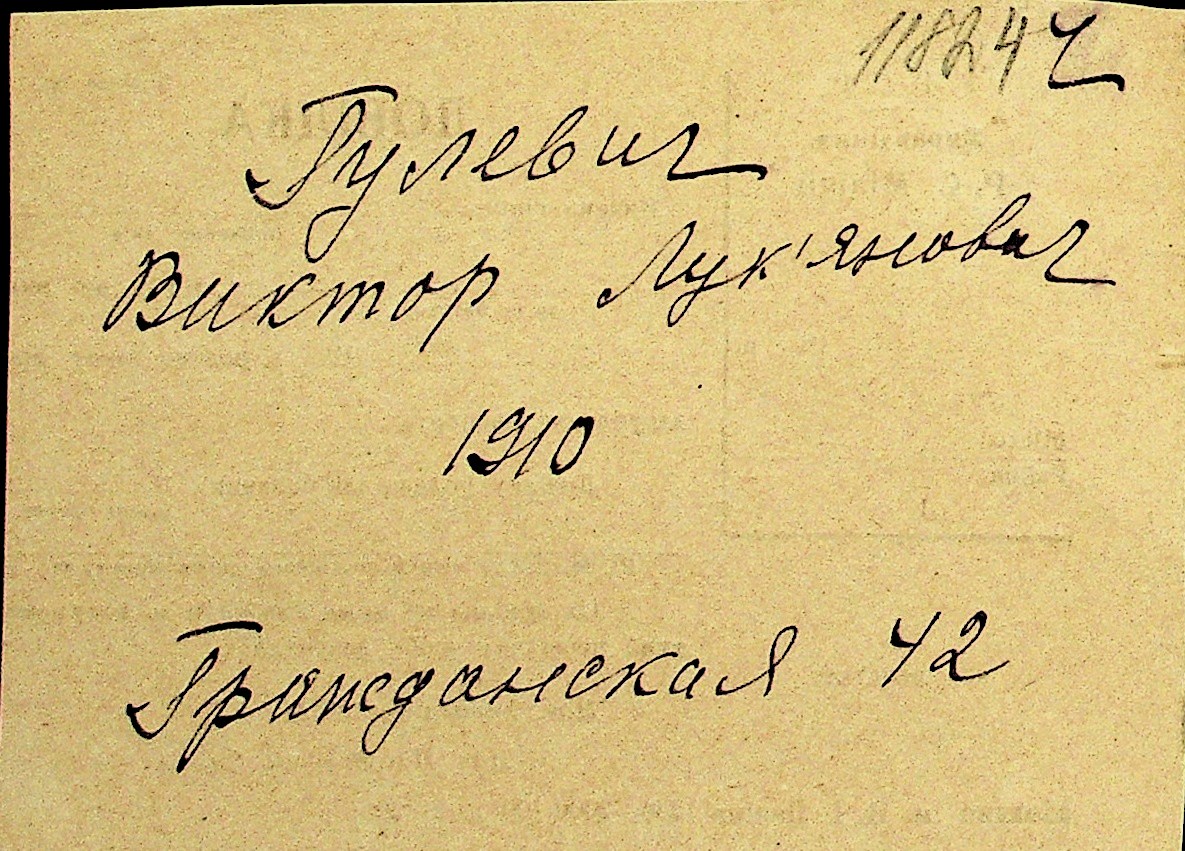 11824 ч
Гулевич
Виктор Лук'янович
1910
Гражданская 42